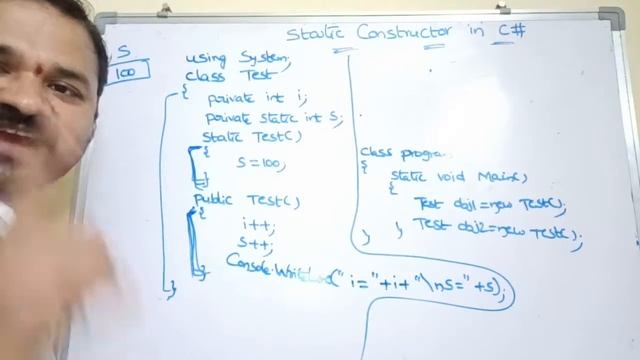 Static Constructor in C#
S
100
using System;
class Test
{
private int i;
private static int s;
static Test()
{
s=100;
}
public Test()
{
i++;
s++;
Console.WriteLine("i="+i+"\ns="+s);
}
}
class program
{
static void Main()
{
Test obj1=new Test();
Test obj2=new Test();
}
}